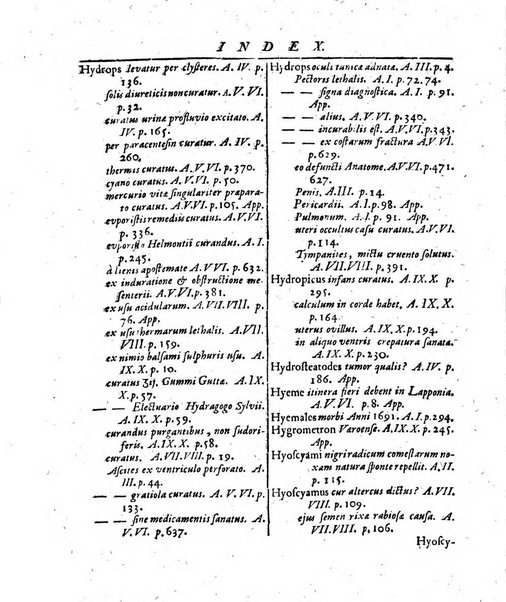 INDEX.
Hydrops levatur per clysteres. A. IV. p.
136.
solis diureticis non curatur. A. V. VI.
p. 32.
curatus urinæ profluvio excitato. A.
IV. p. 165.
per paracentesin curatur. A. IV. p.
260.
thermis curatus. A. V. VI. p. 370.
cyano curatus. A. V. VI. p. 50.
mercurio vitæ singulariter præpara-
to curatus. A. V. VI. p. 105. App.
evporistis remediis curatus. A. V. VI.
p. 336.
evporisto Helmontii curandus. A. I.
p. 245.
à lienis apostemate A. V VI. p. 632.
ex induratione & obstructione me-
senterii. A. V. VI. p. 381.
ex usu acidularum. A. VII. VIII. p.
76. App.
ex usu thermarum lethalis. A. VII.
VIII. p. 159.
ex nimio balsami sulphuris usu. A.
IX. X. p. 10.
curatus Gummi Guttæ. A. IX.
X. p. 57.
— — Electuario Hydragogo Sylvii.
A. IX. X. p. 59.
curandus purgantibus, non sudori-
feris. A. IX. X. p. 58.
curatus. A. VII. VIII. p. 19.
Ascites ex ventriculo perforato. A.
III. p. 44.
— — gratiola curatus. A. V. VI. p.
133.
— — sine medicamentis sanatus. A.
V. VI. p. 637.
Hydrops oculi tunicæ adnatæ. A. III. p. 4.
Pectoris lethalis. A. I. p. 72. 74.
— — signa diagnostica. A. I. p. 91.
App.
— — alius. A. V. VI. p. 340.
— — incurabilis est. A. V. VI. p. 343.
— — ex costarum fractura A. V VI.
p. 629.
eo defuncti Anatome. A. V VI. p. 471.
627.
Penis. A. III. p. 14.
Pericardii. A. I. p. 98.
Pulmonum. A. I. p. 91. App.
uteri occultus casu curatus. A. V. VI.
p. 114.
Tympanites, mictu cruento solutus.
A. VII. VIII. p. 391.
Hydropicus infans curatus. A. IX. X. p.
295.
calculum in corde habet. A. IX. X.
p. 164.
uterus ovillus. A. IX. X. p. 194.
in aliquo ventris crepatura sanata.
A. IX. X. p. 230.
Hydrosteatodes tumor qualis? A. IV. p.
186. App.
Hyeme itinera fieri debent in Lapponia.
A. V. VI. p. 8. App.
Hyemales morbi Anni 1691. A. I. p. 294.
Hygrometron Varoense. A. IX. X. p. 245.
App.
Hyoscyami nigri radicum comestarum no-
xam natura sponte repellit. A. II.
p. 115.
Hyoscyamus cur altercus dictus? A. VII.
VIII. p. 109.
ejus semen rixæ rabiosæ causa. A.
VII. VIII. p. 106.
Hyoscy-